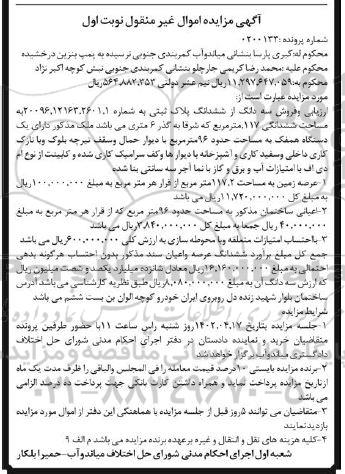 آگهی مزایده اموال غیر منقول نوبت اول
شماره پرونده :۰۲۰۰۱۳۳
محکوم له:کبری پارسا بنشانی میاندوآب کمربندی جنوبی نرسیده به پمپ بنزین درخشیده
محکوم علیه :محمد رضا کریمی جارچلو بنشانی کمربندی جنوبی نبش کوچه اکبر نژاد
محکوم به:۱۱,۲۹۷,۶۴۷,۰۵۹ریال نیم عشر دولتی ۵۶۴,۸۸۲,۳۵۲ریال
مورد مزایده عبارت است از:
ارزیابی وفروش سه دانگ از ششدانگ پلاک ثبتی به شماره
مساحت ششدانگی ۱۱۷,مترمربع که شرقا به گذر ۶ متری می باشد ملک مذکور دارای یک
دستگاه همکف به مساحت حدود ۹۶مترمربع با دیوار حمال وسقف تیرچه بلوک وبا نازک
کاری داخلی وسفید کاری و آشپزخانه با دیوار ها وکف سرامیک کاری شده و کابینت از نوع ام
دی اف با امتیازات آب و برق و گاز با نما آجر سه سانتی بنا شده
۱-عرصه زمین به مساحت ۱۱۷.۲متر مربع از قرار هر متر مربع به مبلغ ۱۰۰,۰۰۰,۰۰۰ریال
به مبلغ کل ۱۱,۷۲۰,۰۰۰,۰۰۰ریال می باشد
۲-اعیانی ساختمان مذکور به مساحت حدود ۹۶متر مربع که از قرار هر متر مربع به مبلغ
۴۰,۰۰۰,۰۰۰ ریال جمعا به مبلغ کل ۳,۸۴۰,۰۰۰,۰۰۰ریال می باشد
۳-بااحتساب امتیازات متعلقه وبا محوطه سازی به ارزش کلی ۶۰۰,۰۰۰,۰۰۰ریال می باشد
جمع کل مبلغ برآورد ششدانگ عرصه واعیان سند مذکور بدون احتساب هرگونه بدهی
احتمالی به مبلغ ۱۶,۱۶۰,۰۰۰,۰۰۰ریال معادل شانزده میلیارد یکصد و شصت میلیون ریال
که ارزش سه دانگ آن به مبلغ ۸,۰۸۰,۰۰۰,۰۰۰ریال طبق نظریه کارشناسی می باشد آدرس
ساختمان بلوار شهید زنده دل روبروی ایران خودرو کوچه الوان بن بست ششم می باشد
شرایط مزایده
۱-جلسه مزایده بتاریخ ۱۴۰۲,۰۴,۱۷روز شنبه راس ساعت ۱۱با حضور طرفین پرونده
متقاضیان خرید و نماینده دادستان در دفتر اجرای احکام مدنی شورای حل اختلاف
دادگستری میاندوآب برگزار خواهد شد
۲-برنده مزایده بایستی ۱۰درصد قیمت معامله را فی المجلس والباقی را ظرف مدت یک ماه
ازتاریخ مزایده پرداخت نماید و همراه داشتن کارت بانکی جهت پرداخت ده درصد الزامی
می باشد
۳-متقاضیان می توانند ۵روز قبل از جلسه مزایده با هماهنگی این دفتر از اموال مورد مزایده
بازدیدنمایند
۴-کلیه هزینه های نقل و انتقال و غیره برعهده برنده مزایده می باشد م الف ۹
شعبه اول اجرای احکام مدنی شورای حل اختلاف میاندوآب-حمیرا بلکار